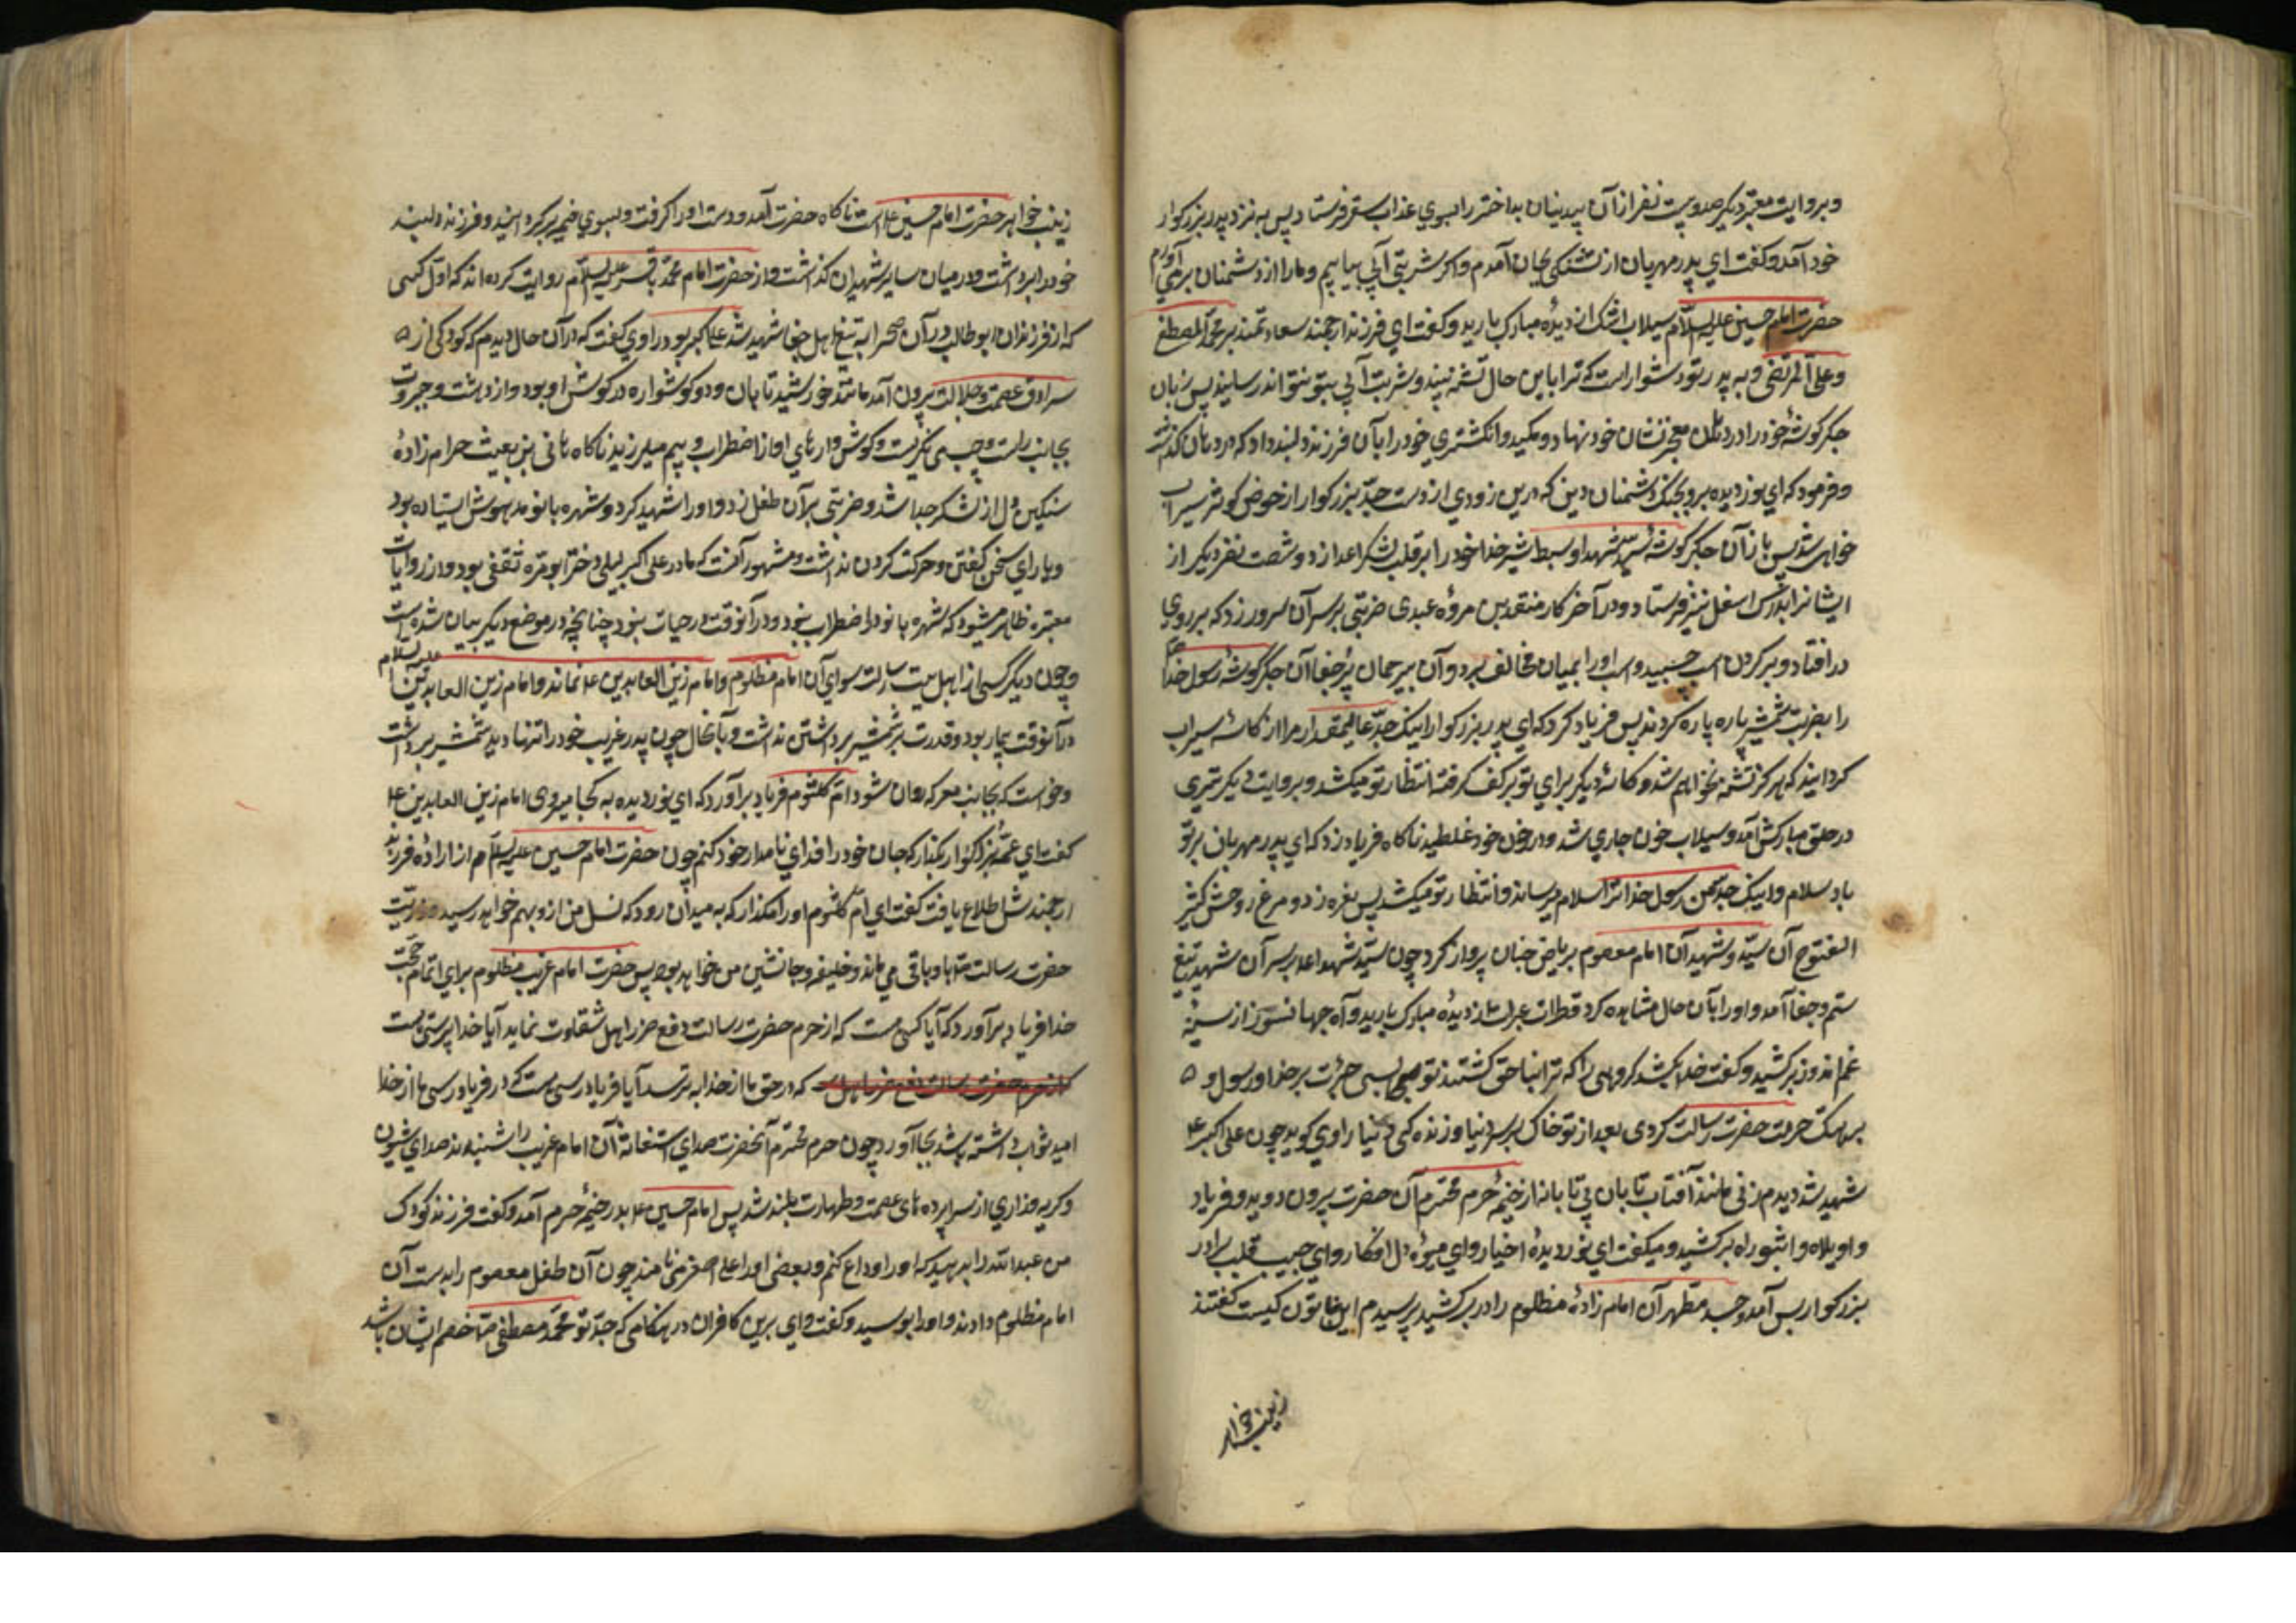 وبروایت معتبر دیگر صدوبیست نفر از آن بیدینان بداختر را بسوی عذاب سقر فرستاد پس به نزد پدر بزرکوار
خود آمد وکفت ای پدر مهربان از تشنکی بجان آمدم واکر شربتی آبی بیابیم ومارا از دشمنان برمی آورم
حضرت امام حسین علیه السلام سیلاب اشک از دیدهٔ مبارک بارید وکفت ای فرزند ارجمند سعادتمند بر محمد المصطفی
وعلی المرتضی وبه پدر تو دشوار است که ترا باین حال تشنه بینند وشربت آبی بتو نتوانند رسانید پس زبان
جکرکوشهٔ خود را در دهان معجزنشان خود نهاد ومکید وانکشتری خود را بآن فرزند دلبند داد که در دهان کذاشت
وفرمود که ای نوردیده برو بجنک دشمنان دین که درین زودی از دست جد بزرکوار از حوض کوثر سیراب
خواهی شد پس باز آن جکرکوشهٔ سید شهدا وسبط شیر خدا خود را بر قلب لشکر اعدا زد وشصت نفر دیکر از
ایشانرا بدرک اسفل نیز فرستاد ودر آخر کار منقد بن مره عبدی ضربتی بر سر آن سرور زد که بر روی
در افتاد وبر کردن اسب چسبید واسب اورا بمیان مخالف برد وآن بیرحمان پرجفا آن جکرکوشهٔ رسول خدا
را بضربت شمشیر پاره پاره کردند پس فریاد کرد که ای پدر بزرکوار اینک جد عالیمقدار مرا از کاسه سیراب
کردانید که هرکز تشنه نخواهم شد وکاسهٔ دیکر برای تو بر کف کرفته انتظار تو میکشد وبروایت دیکر تیری
در حلق مبارکش آمد وسیلاب خون جاری شد ودر خون خود غلطید ناکاه فریاد زد که ای پدر مهربان بر تو
باد سلام واینک جد من رسول خدا ترا سلام میرساند وانتظار تو میکشد پس نعره زد ومرغ روحش کثیر
الفتوح آن سید وشهید آن امام معصوم بریاض جنان پرواز کرد چون سید شهدا علیه بر سر آن شهید تیغ
ستم وجفا آمد واورا بآن حال مشاهده کرد قطرات عبرات از دیدهٔ مبارک بارید وآه جهانسوز از سینهٔ
غم اندوز برکشید وکفت خدا بکشد کروهی را که ترا بناحق کشتند توصیح بسی جرات بر خدا ورسول و
بر هتک حرمت حضرت رسالت کردی بعد از تو خاک بر سر دنیا وزنده کی دنیا راوی کوید چون علی اکبر ع
شهید شد دیدم زنی مانند آفتاب تابان بی تابانه از خیمهٔ حرم محترم آن حضرت بیرون دوید وفریاد
واویلاه واثبوراه برکشید ومیکفت ای نوردیدهٔ اخیار وای میوهٔ دل افکار وای حبیب قلب برادر
بزرکوار پس آمد وجسد مطهر آن امام زادهٔ مظلوم را در برکشید پرسیدم این خاتون کیست کفتند
زینب خواهر
زینب خواهر حضرت امام حسین ع است ناکاه حضرت آمد ودست اورا کرفت وبسوی خیمه برکردانید وفرزند دلبند
خود را برداشت ودر میان سایر شهیدان کذاشت واز حضرت امام محمد باقر علیه السلام روایت کرده اند که اول کسی
که از فرزندان ابوطالب در آن صحرا به تیغ اهل جفا شهید شد علی اکبر بود راوی کفت که در آن حال دیدم که کودکی از
سرادق عصمت وجلالت بیرون آمد مانند خورشید تابان ودو کوشواره در کوش او بود واز دهشت وحیرت
بجانب راست وچپ می نکریست وکوشوارهای او از اضطراب وبیم میلرزید ناکاه هانی بن بعیث حرام زادهٔ
سنکین دل از لشکر جدا شد وضربتی بر آن طفل زد واورا شهید کرد وشهره بانو مدهوش ایستاده بود
ویارای سخن کفتن وحرکت کردن نداشت ومشهور آنست که مادر علی اکبر لیلی دختر ابومره ثقفی بود واز روایات
معتبره ظاهر میشود که شهره بانو در اضطراب نبود ودر آنوقت در حیات نبود چنانچه در موضع دیکر بیان شده است
وچون دیکر کسی از اهل بیت رسالت سوای آن امام مظلوم وامام زین العابدین ع نماند وامام زین العابدین علیه السلام
در آنوقت بیمار بود وقدرت بر شمشیر برداشتن نداشت وبا آنحال چون پدر غریب خود را تنها دید شمشیر برداشت
وخواست که بجانب معرکه روان شود ام کلثوم فریاد برآورد که ای نوردیده به کجا میروی امام زین العابدین ع
کفت ای عمه بزرکوار بکذار که جان خود را فدای نامدار خود کنم چون حضرت امام حسین علیه السلام از ارادهٔ فرزند
ارجمندش اطلاع یافت کفت ای ام کلثوم اورا مکذار که به میدان رود که نسل من از و بهم خواهد رسید وذریت
حضرت رسالت بتا باو باقی می ماند وخلیفه وجانشین من خواهد بود پس حضرت امام غریب مظلوم برای اتمام حجت
خدا فریاد برآورد که آیا کسی هست که از حرم حضرت رسالت دفع ضرر اهل شقاوت نماید آیا خداپرستی هست
که از حرم حضرت رسالت دفع ضرر اهل که در حق ما از خدا بترسد آیا فریادرسی هست که در فریادرسی ما از خدا
امید ثواب داشته باشد بجا آورد چون حرم محترم آنحضرت صدای استغاثهٔ آن امام غریب را شنیدند صدای شیون
وکریه وزاری از سراپرده های عصمت وطهارت بلند شد پس امام حسین ع بدر خیمهٔ حرم آمد وکفت فرزند کودک
من عبدالله را بدهید که اورا وداع کنم وبعضی اورا علی اصغر می نامند چون آن طفل معصوم را بدست آن
امام مظلوم دادند واورا بوسید وکفت وای برین کافران در هنکامی که جد تو محمد مصطفی ص خصم ایشان باشد